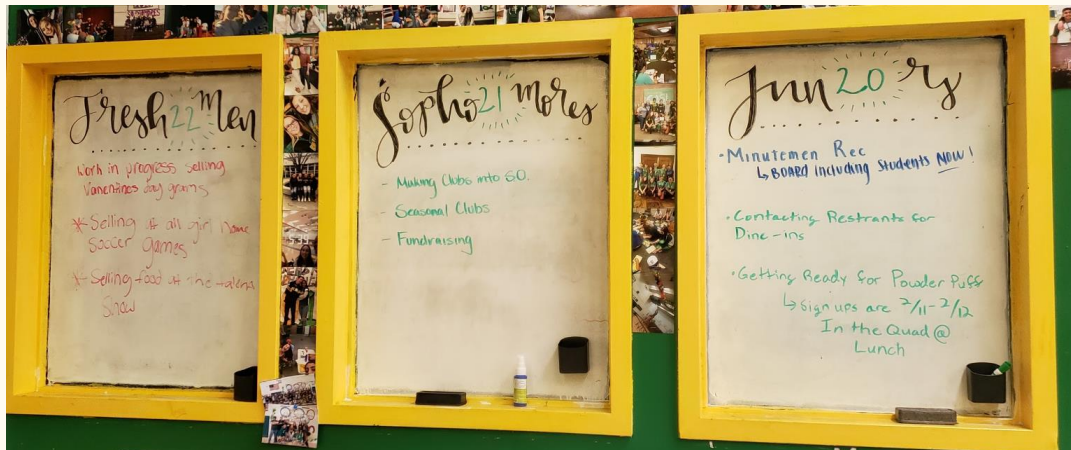 Fresh 22 Men
Work in progress selling
Valentines day grams
* Selling at all girl home
Soccer Games
* Selling food at the talent
Show
Sopho 21 mores
- Making Clubs into GO.
- Seasonal Clubs
- Fundraising
Jun 20 rs
• Minutemen Rec
↳ BOARD including Students NOW!
• Contacting Restrants for
Dine-ins
• Getting Ready for Powder Puff
↳ Sign ups are 2/11-2/12
In the Quad @
Lunch